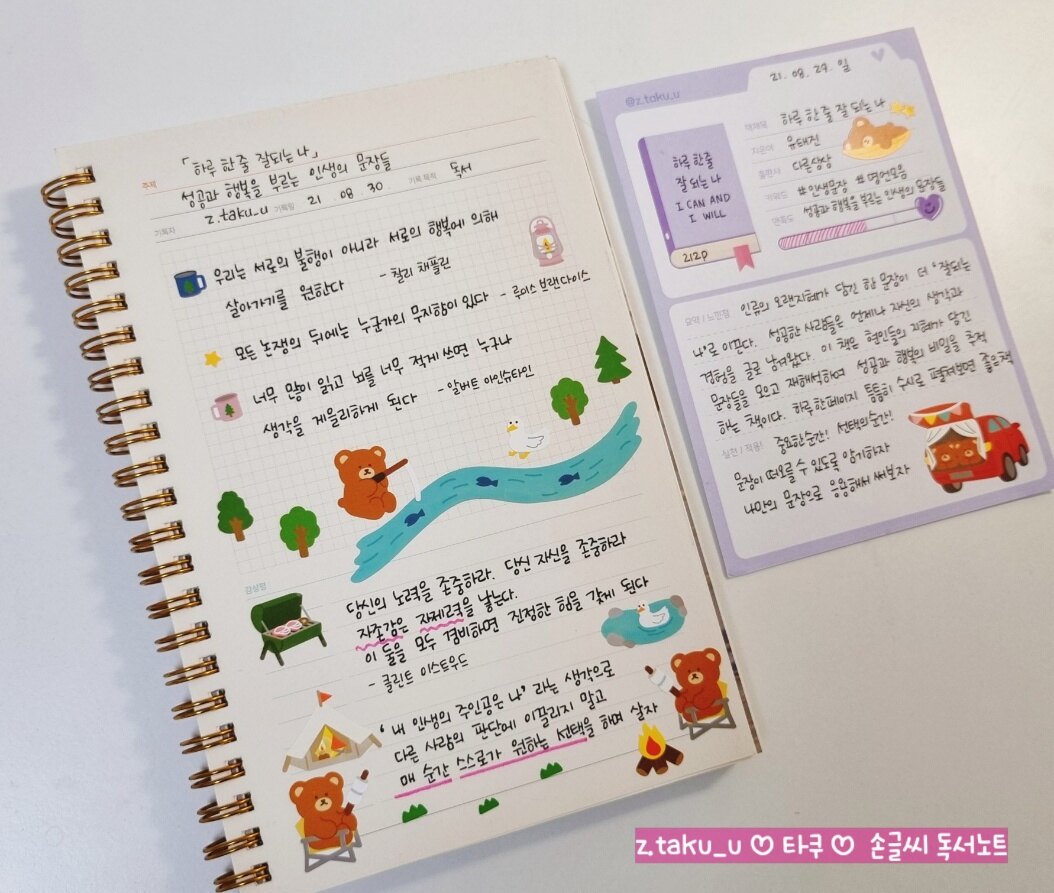 「하루 한 줄 잘되는 나」
주제 성공과 행복을 부르는 인생의 문장들
기록자 z.taku_u 기록일 21 08 30 기록 목적 독서
우리는 서로의 불행이 아니라 서로의 행복에 의해
살아가기를 원한다 - 찰리 채플린
모든 논쟁의 뒤에는 누군가의 무지함이 있다 - 루이스 브랜다이스
너무 많이 읽고 뇌를 너무 적게 쓰면 누구나
생각을 게을리하게 된다 - 알버트 아인슈타인
감상평
당신의 노력을 존중하라. 당신 자신을 존중하라
자존감은 자제력을 낳는다.
이 둘을 모두 겸비하면 진정한 힘을 갖게 된다
- 클린트 이스트우드
'내 인생의 주인공은 나' 라는 생각으로
다른 사람의 판단에 이끌리지 말고
매 순간 스스로가 원하는 선택을 하며 살자
21. 08. 29. 일
@z.taku_u
하루 한 줄
잘 되는 나
I CAN AND
I WILL
212p
책제목 하루 한 줄 잘 되는 나
지은이 유태진
출판사 다른상상
키워드 #인생문장 #명언모음
성공과 행복을 부르는 인생의 문장들
만족도
요약 / 느낀점 인류의 오랜지혜가 담긴 한 문장이 더 '잘되는
나'로 이끈다. 성공한 사람들은 언제나 자신의 생각과
경험을 글로 남겨왔다. 이 책은 현인들의 지혜가 담긴
문장들을 모으고 재해석하여 성공과 행복의 비밀을 추적
하는 책이다. 하루한페이지 틈틈히 수시로 펼쳐보면 좋은책
실천 / 적용! 중요한순간! 선택의순간!
문장이 떠오를 수 있도록 암기하자
나만의 문장으로 응용해서 써보자
z.taku_u ♡ 타쿠 ♡ 손글씨 독서노트